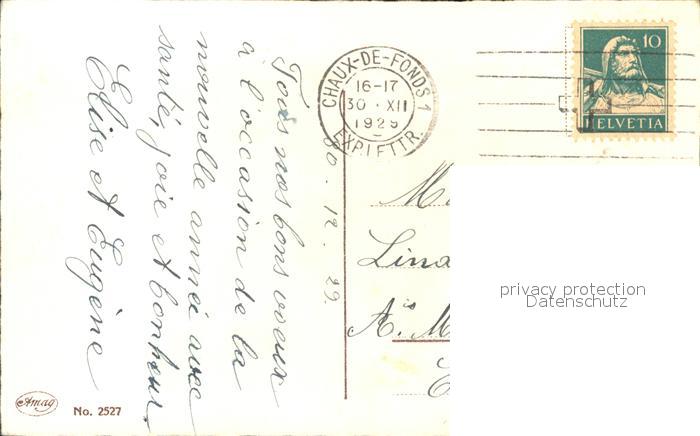 CHAUX-DE-FONDS 1
16-17
30 · XII
1929
EXP. LETTR.
10
HELVETIA
30 . 12 . 29.
Tous nos bons voeux
à l'occasion de la
nouvelle année avec
santé, joie et bonheur.
Elise et Eugène
M
Lina
A. M
privacy protection
Datenschutz
Amag
No. 2527